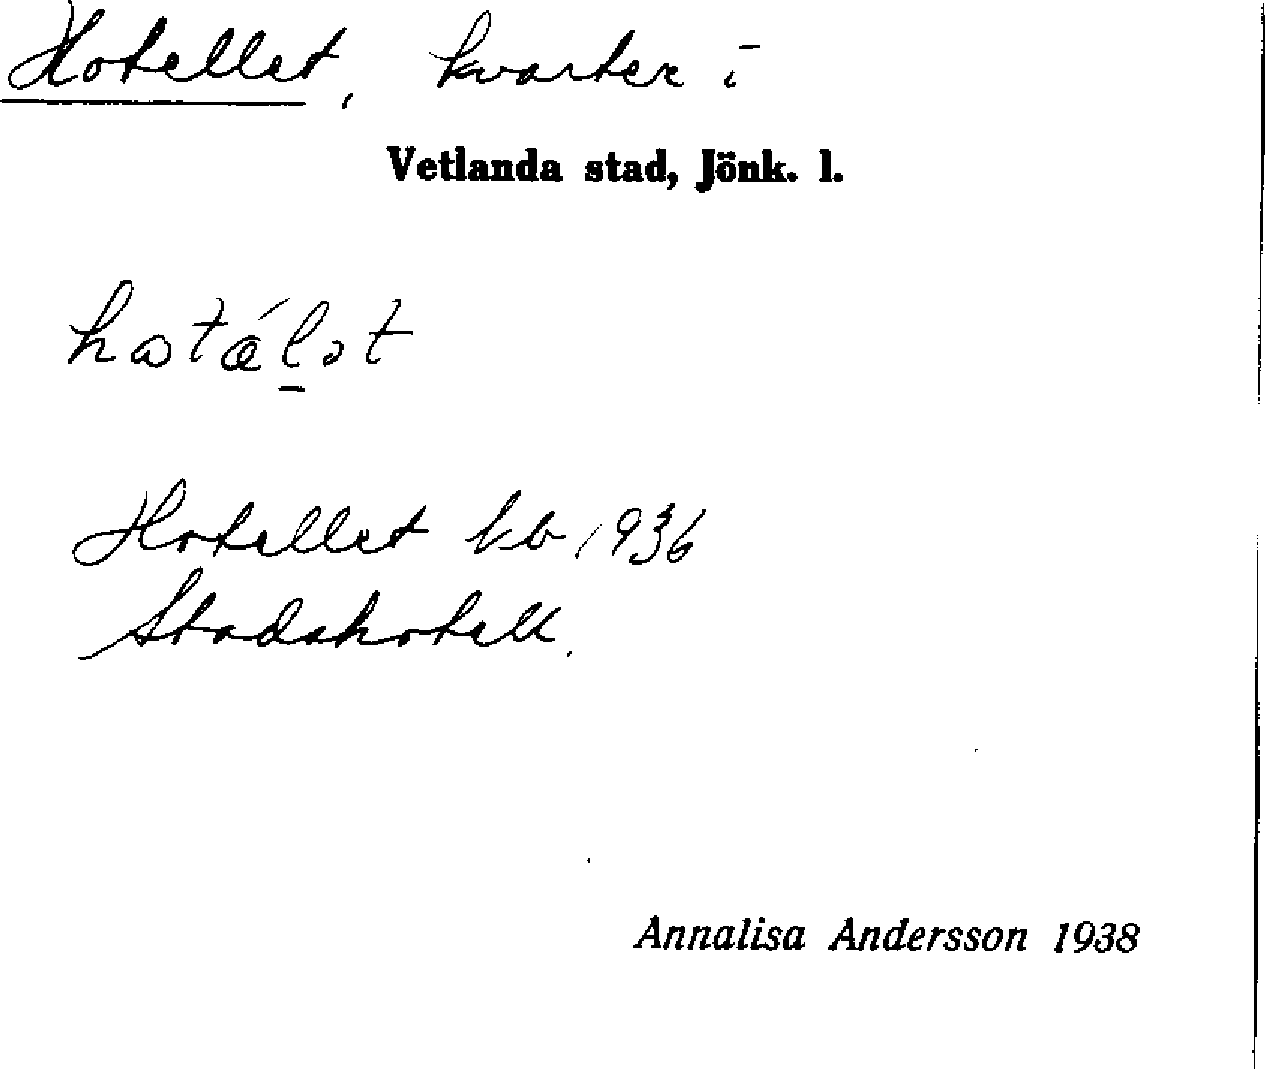 Hotellet, kvarter i
Vetlanda stad, Jönk. l.
Hotellet kb 1936
Stadshotell.
Annalisa Andersson 1938